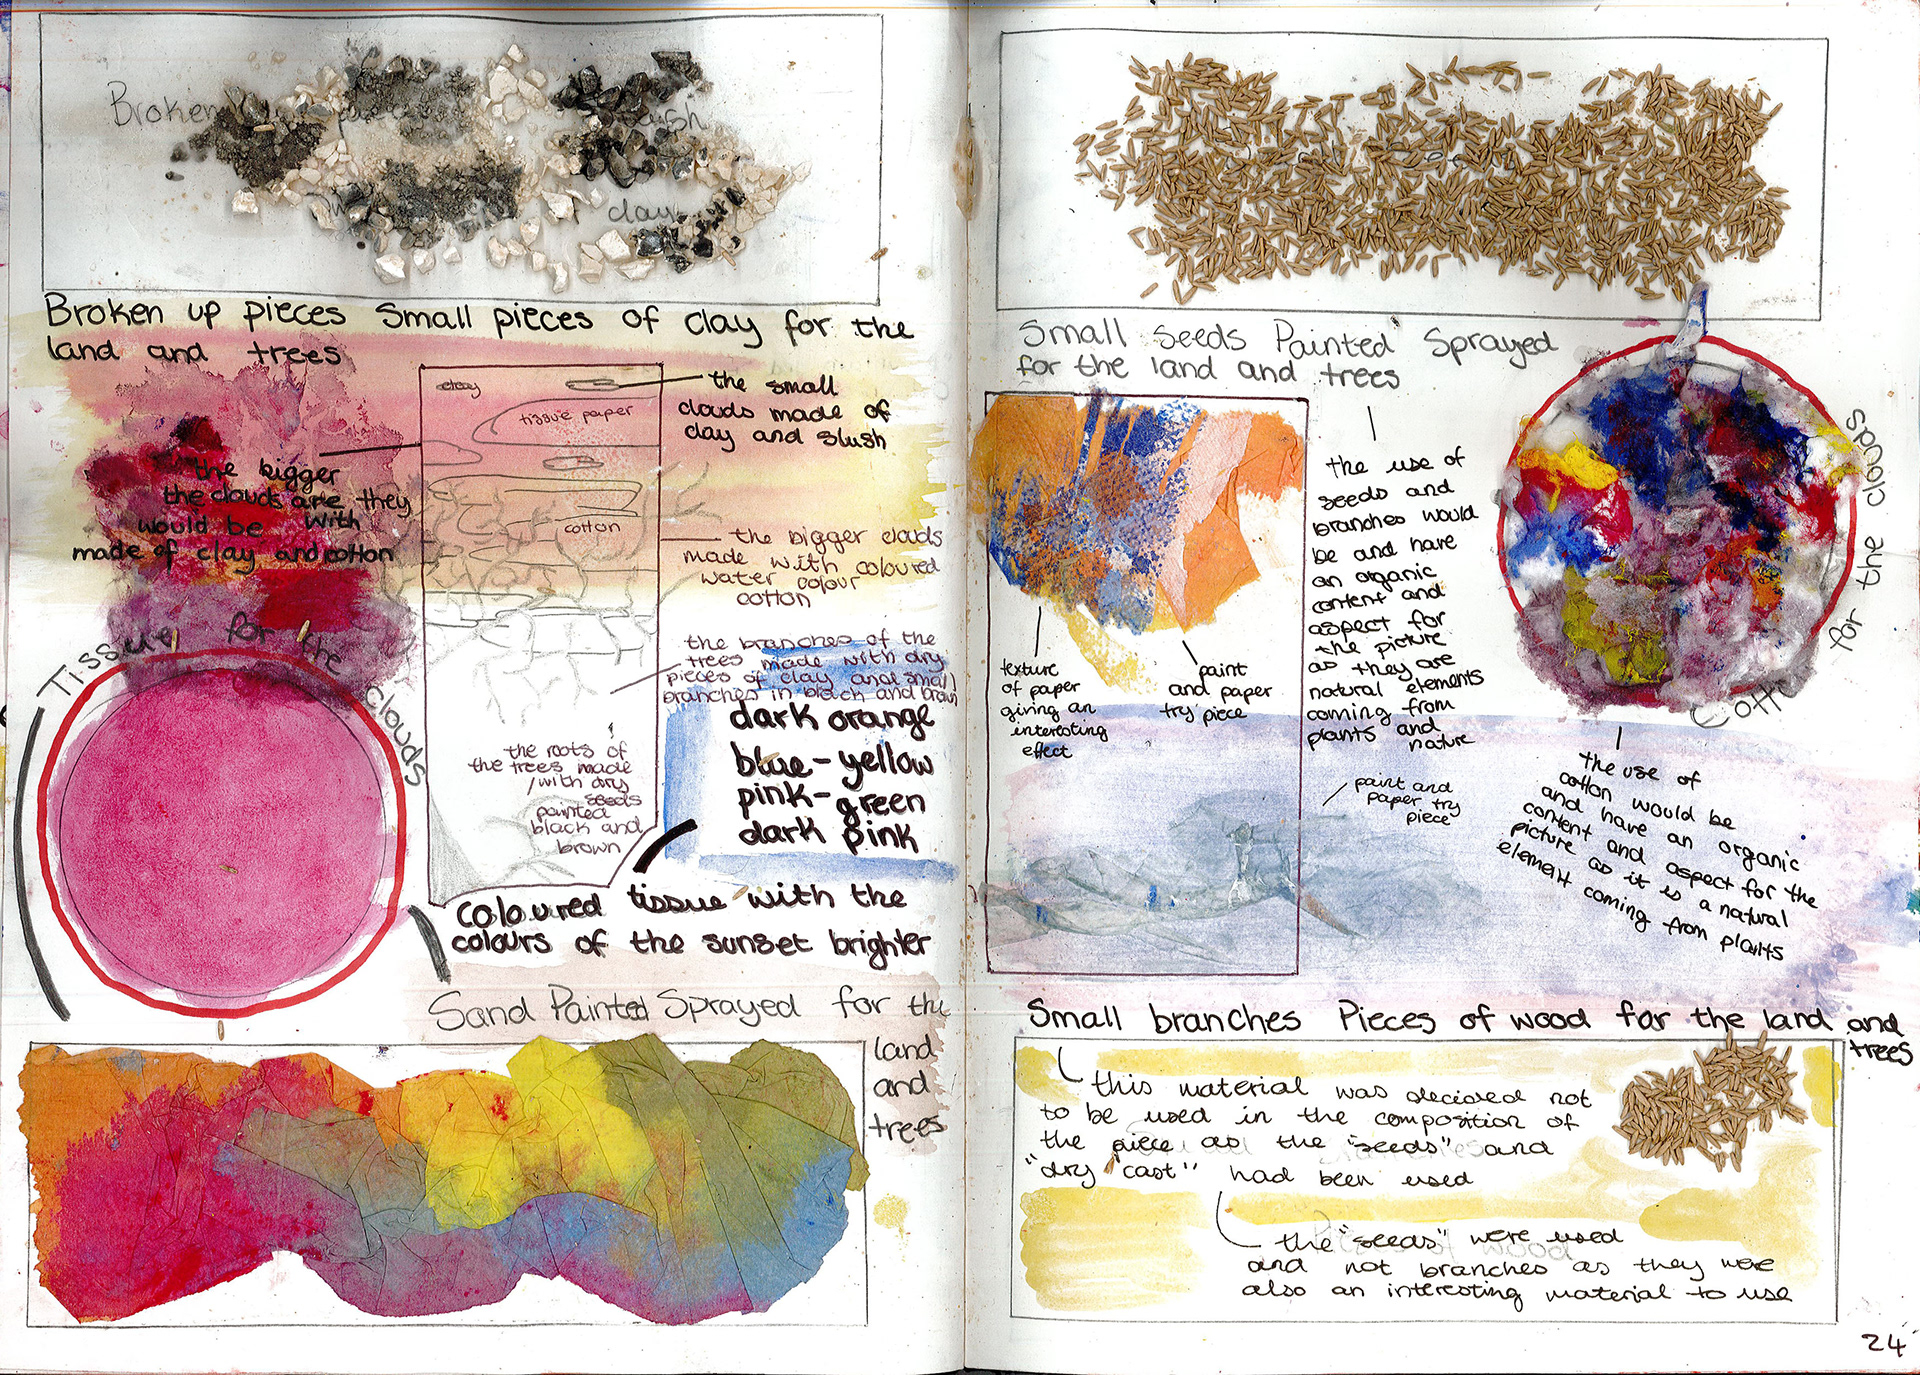 Broken
clay
Broken up pieces Small pieces of clay for the
land and trees
clay
tissue paper
cotton
the small
clouds made of
clay and slush
the bigger
the clouds are they
would be with
made of clay and cotton
the bigger clouds
made with coloured
water colour
cotton
the branches of the
trees made with dry
pieces of clay and small
branches in black and brown
the roots of
the trees made
with dry
seeds
painted
black and
brown
dark orange
blue-yellow
pink-green
dark pink
Tissue for the clouds
coloured tissue with the
colours of the sunset brighter
Sand Painted Sprayed for the
land
and
trees
Small Seeds Painted Sprayed
for the land and trees
the use of
seeds and
branches would
be and have
an organic
content and
aspect for
the picture
as they are
natural elements
coming from
plants and
nature
texture
of paper
giving an
interesting
effect
paint
and paper
try piece
paint and
paper try
piece
Cotton for the clouds
the use of
cotton would be
and have an organic
content and aspect for the
picture as it is a natural
element coming from plants
Small branches Pieces of wood for the land and
trees
this material was decided not
to be used in the composition of
the piece as the "seeds" and
"dry cast" had been used
the "seeds" were used
and not branches as they were
also an interesting material to use
24